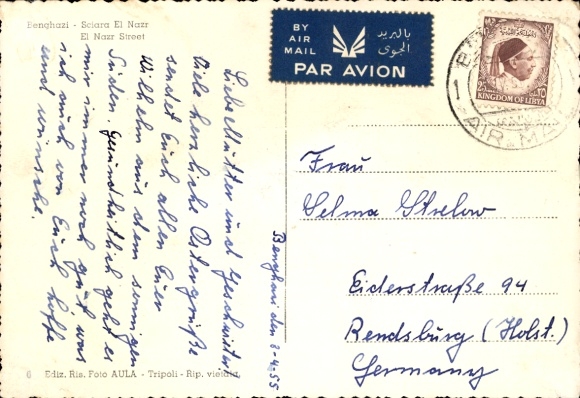 Benghazi - Sciara El Nazr
El Nazr Street
BY
AIR
MAIL
بالبريد
الجوى
PAR AVION
KINGDOM OF LIBYA
AIR-MA
Benghasi den 8-4-55
Liebe Mutter und Geschwister,
Viele herzliche Ostergrüße
sendet Euch allen Euer
Wilhelm aus dem sonnigen
Süden. Gesundheitlich geht es
mir immer noch gut, was
ich auch von Euch hoffe
und wünsche.
Frau
Selma Strelow
Eiderstraße 94
Rendsburg (Holst.)
Germany
6 Ediz. Ris. Foto AULA - Tripoli - Rip. vietata